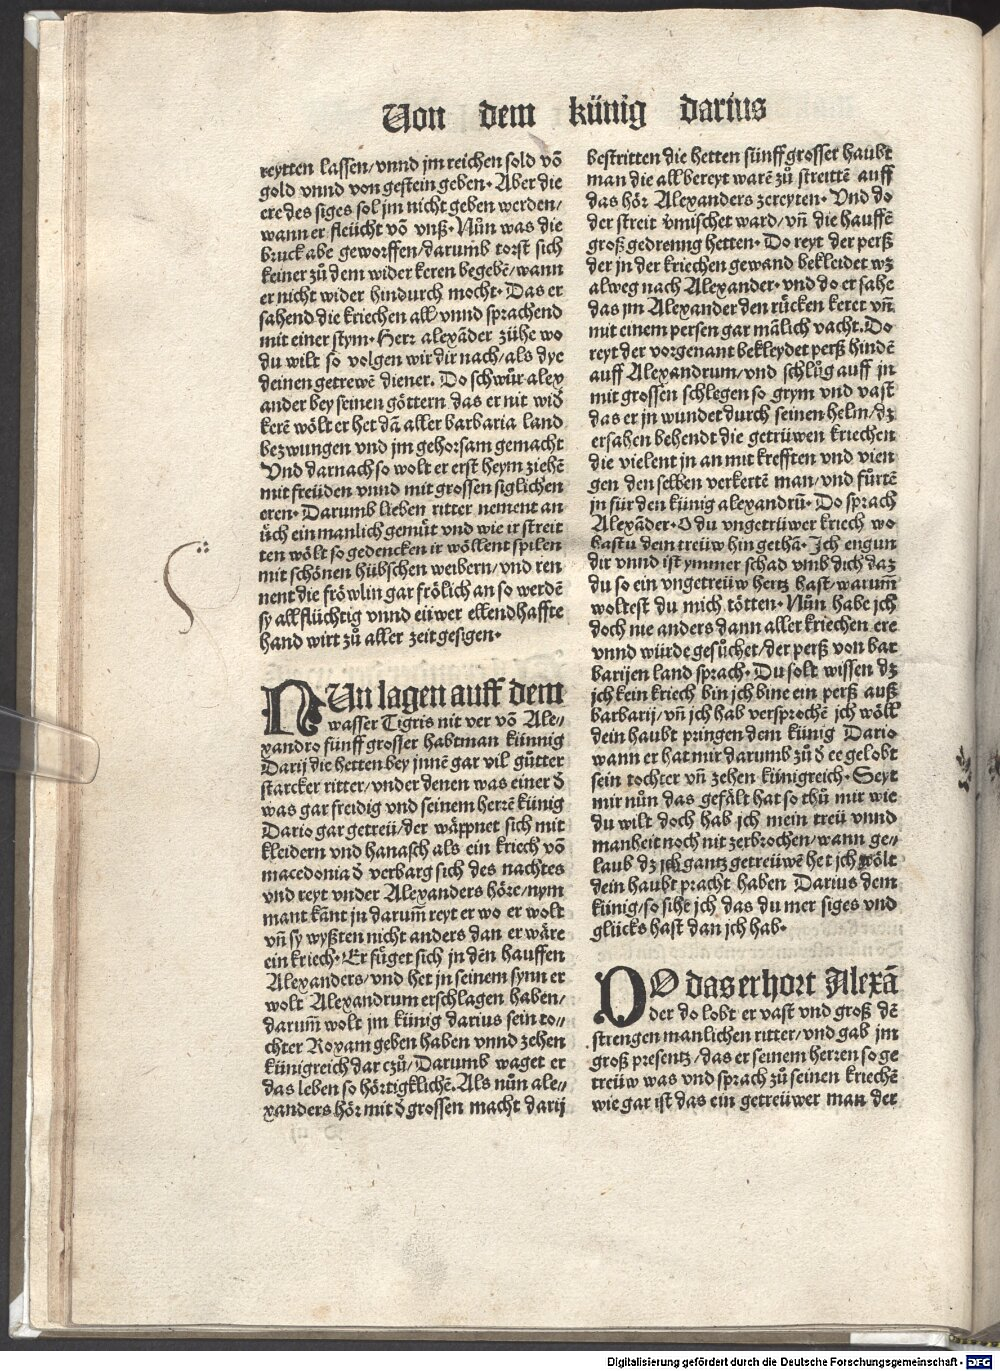 Von dem künig darius
reytten lassen/vnnd jm reichen sold võ
gold vnnd von gestein geben. Aber die
ere des siges sol jm nicht geben werden/
wann er fleücht võ vnß. Nůn was die
bruck abe geworffen/darumb torst sich
keiner zů dem wider keren begebẽ/wann
er nicht wider hindurch mocht. Das er
sahend die kriechen all/vnnd sprachend
mit einer stym. Herr alexãder zühe wo
du wilt so volgen wir dir nach/als dye
deinen getrewẽ diener. Do schwůr alex
ander bey seinen göttern das er nit wið
kerẽ wölt er het dã aller barbaria land
bezwungen vnd jm gehorsam gemacht
Vnd darnach so wolt er erst heym ziehẽ
mit freüden vnnd mit grossen siglichen
eren. Darumb lieben ritter nement an
üch ein manlich gemüt vnd wie ir streit
ten wölt so gedencken ir wöllent spilen
mit schönen hübschen weibern/vnd ren
nent die fröwlin gar frölich an so werdẽ
sy all flüchtig vnnd eüwer ellendhaffte
hand wirt zů aller zeit gesigen.
NUn lagen auff dem
wasser Tigris nit ver võ Ale//
xandro fünff grosser habtman künnig
Darij die hetten bey jnnẽ gar vil gůtter
starcker ritter/vnder denen was einer ð
was gar freidig vnd seinem herrẽ künig
Dario gar getreü/der wäppnet sich mit
kleidern vnd hanasch als ein kriech võ
macedonia ð verbarg sich des nachtes
vnd reyt vnder Alexanders höre/nym
mant kãnt jn darum̃ reyt er wo er wolt
vñ sy wyßten nicht anders dan er wäre
ein kriech. Er füget sich jn den hauffen
Alexanders/vnd het jn seinem synn er
wolt Alexandrum erschlagen haben/
darum̃ wolt jm künig darius sein to//
chter Roxam geben haben vnnd zehen
künigreich dar czů/Darumb waget er
das leben so hörtigklichẽ. Als nůn ale//
xanders hör mit ð grossen macht darij
bestritten die hetten fünff grosser haubt
man die all bereyt warẽ zů streittẽ auff
das hör Alexanders zereyten. Vnd do
der streit v̾mischet ward/vñ die hauffẽ
groß gedrenng hetten. Do reyt der perß
der jn der kriechen gewand bekleidet wz
alweg nach Alexander. vnd do er sahe
das jm Alexander den rücken keret vñ
mit einem persen gar mãlich vacht. Do
reyt der vorgenant bekleydet perß hindẽ
auff Alexandrum/vnd schlůg auff jn
mit grossen schlegen so grym vnd vast
das er jn wundet durch seinen helm/dz
ersahen behendt die getrüwen kriechen
die vielent jn an mit krefften vnd vien
gen den selben verkertẽ man/vnd fůrtẽ
jn für den künig alexandrũ. Do sprach
Alexãder. O du vngetrüwer kriech wo
hastu dein treüw hin gethã. Jch engun
dir vnnd ist ymmer schad vmb dich daz
du so ein vngetreüw hertz hast/warum̃
woltest du mich tötten. Nůn habe jch
doch nie anders dann aller kriechen ere
vnnd würde gesůchet/der perß von bar
barijen land sprach. Du solt wissen dz
jch kein kriech bin jch bine ein perß auß
barbarij/vñ jch hab versprochẽ jch wöll
dein haubt pringen dem künig Dario
wann er hat mir darumb zů ð ee gelobt
sein tochter vñ zehen künigreich. Seyt
mir nůn das gefält hat so thů mir wie
du wilt doch hab jch mein treü vnnd
manheit noch nit zerbrochen/wann ge//
laub dz jch gantz getreüwẽ het jch wölt
dein haubt pracht haben Darius dem
künig/so sihe jch das du mer siges vnd
glücks hast dan jch hab.
DO das erhort Alexã
der do lobt er vast vnd groß dẽ
strengen manlichen ritter/vnd gab jm
groß presentz/das er seinem herren so ge
treüw was vnd sprach zů seinen kriechẽ
wie gar ist das ein getreüwer man der
Digitalisierung gefördert durch die Deutsche Forschungsgemeinschaft - DFG